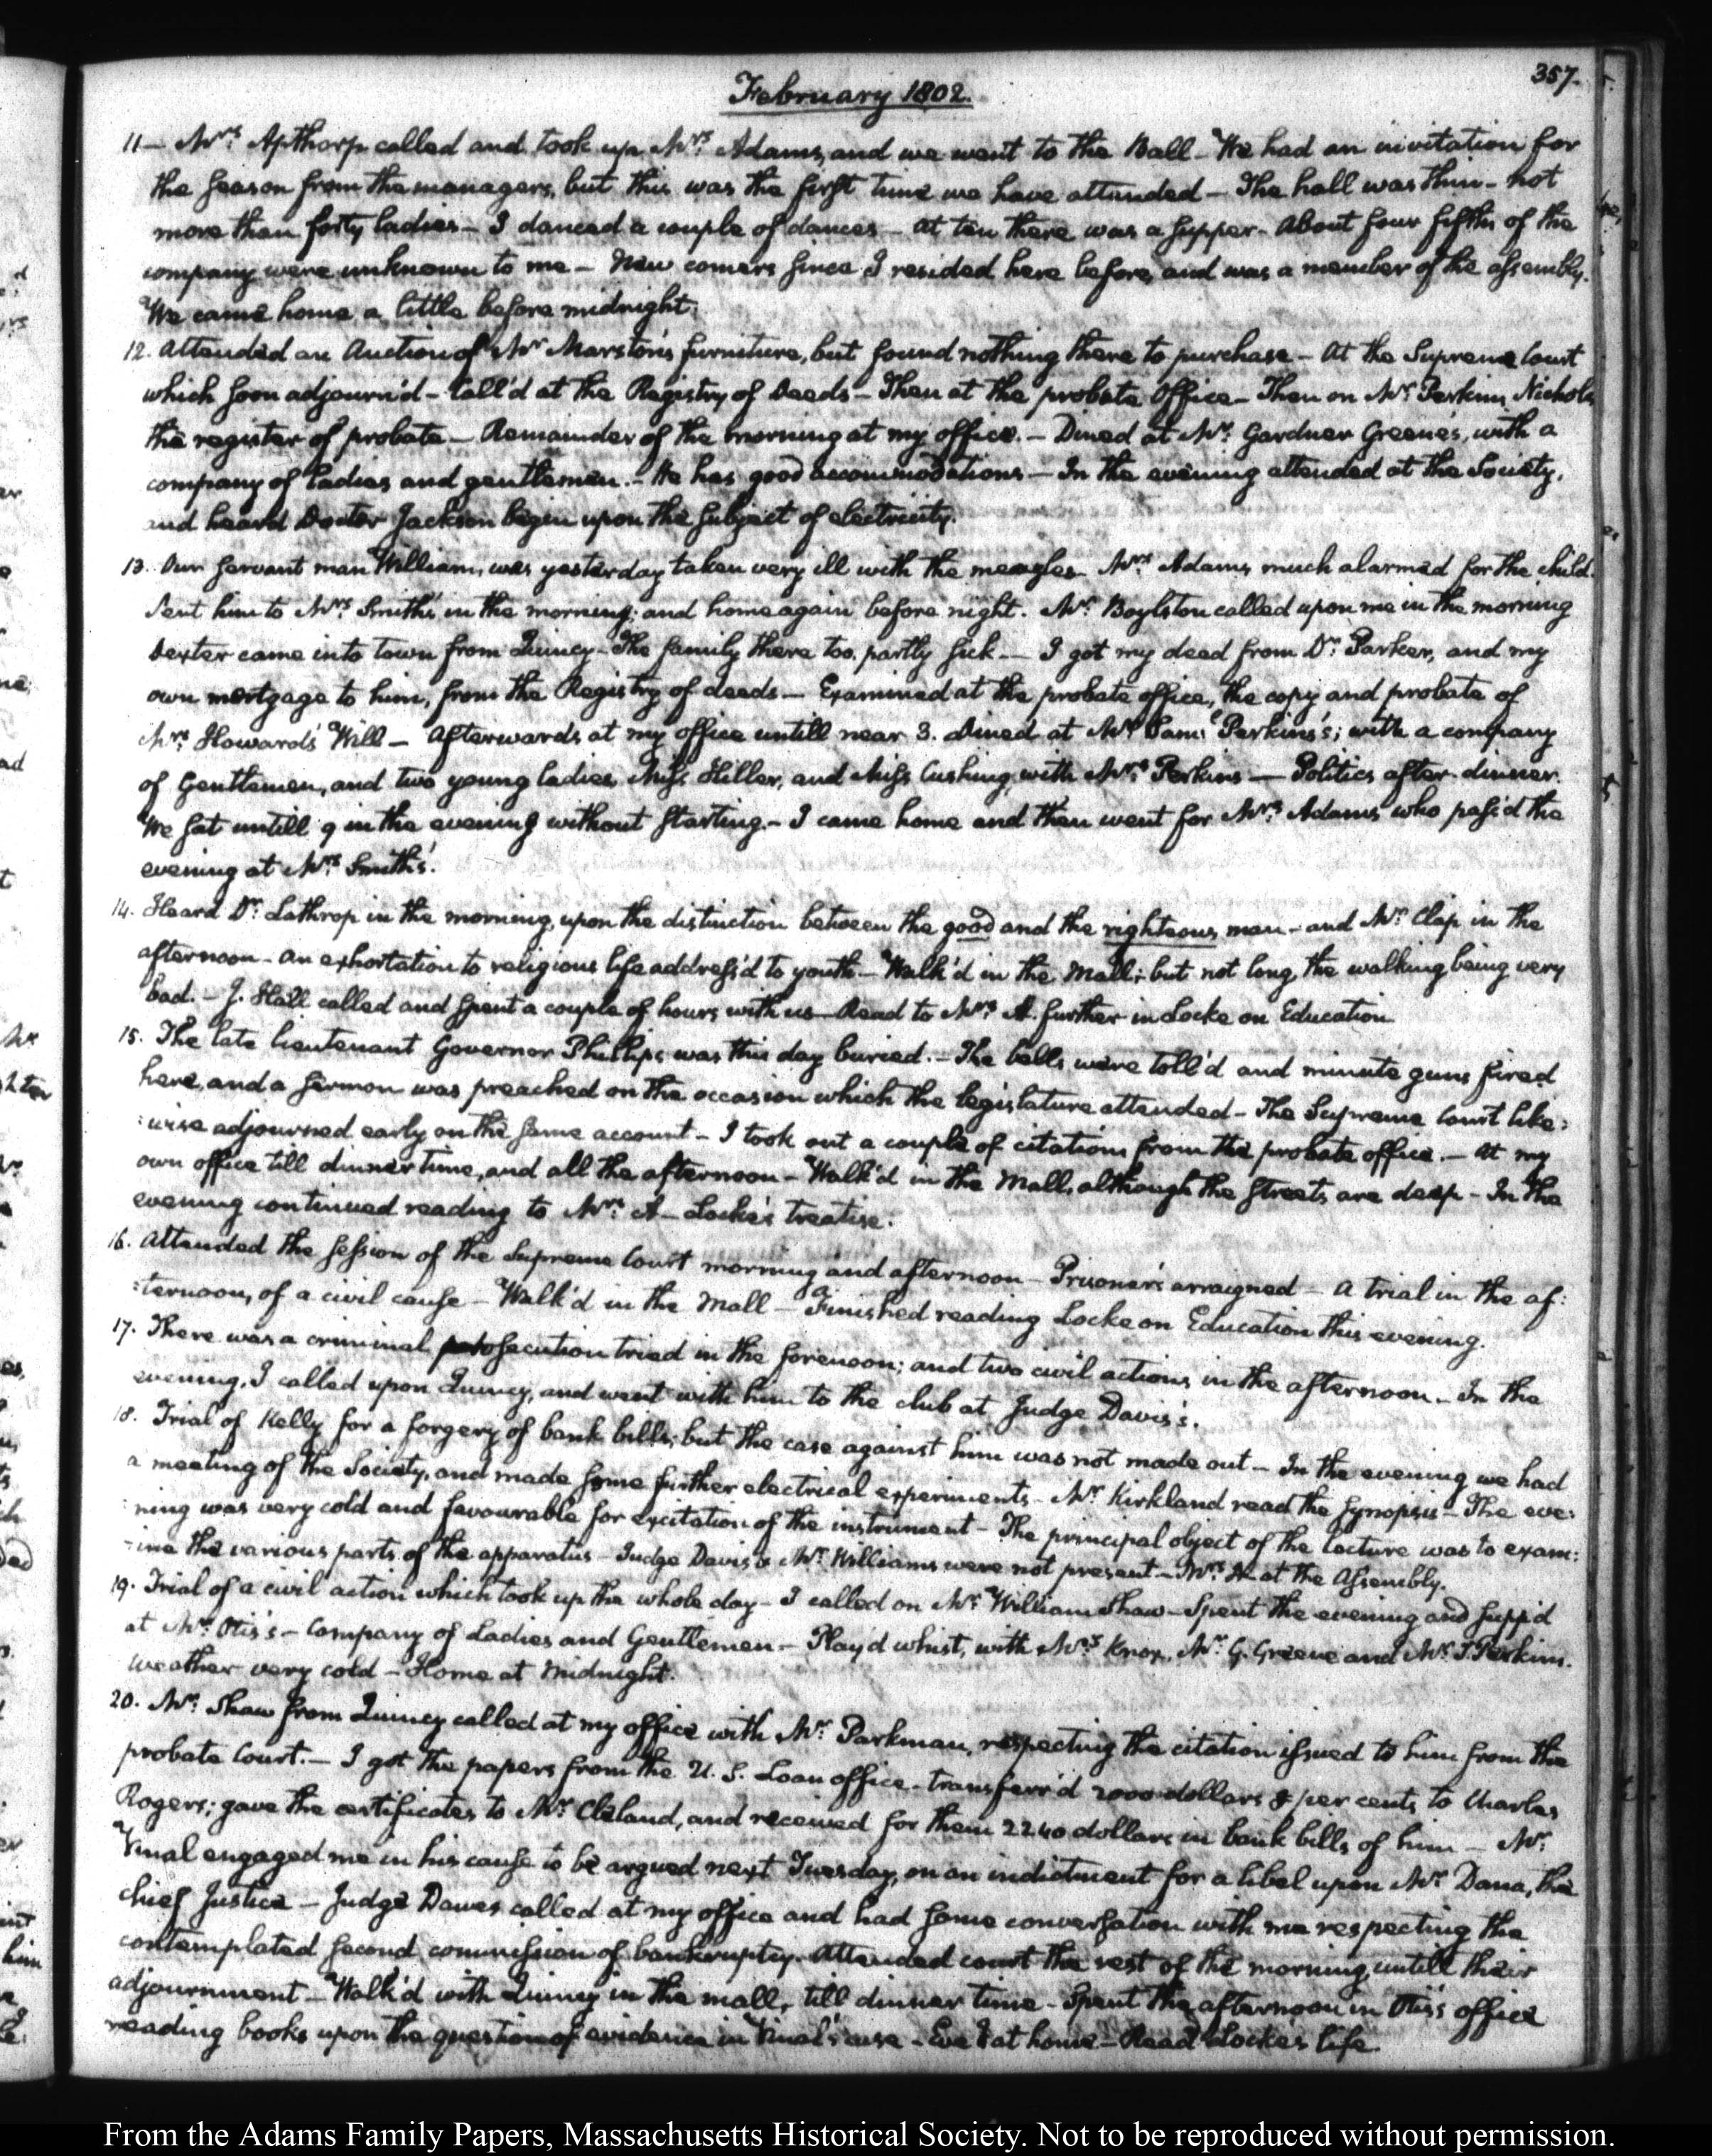 February 1802.
357.
11— Mrs. Apthorp called and took up Mrs. Adams, and we went to the Ball— We had an invitation for
the season from the managers, but this was the first time we have attended— The hall was thin— not
more than forty ladies— I danced a couple of dances— at ten there was a supper— About four fifths of the
company were unknown to me— New comers since I resided here before, and was a member of the assembly.
We came home a little before midnight.
12. Attended an Auction of Mr Marston's furniture, but found nothing there to purchase— At the Supreme Court
which soon adjourn'd— Call'd at the Registry of Deeds— Then at the probate Office— Then on Mr. Perkins Nichols
the register of probate— Remainder of the morning at my office.— Dined at Mr. Gardner Greene's, with a
company of ladies and gentlemen.— He has good accommodations— In the evening attended at the Society,
and heard Doctor Jackson begin upon the subject of electricity.
13. Our servant man William, was yesterday taken very ill with the measles— Mrs. Adams much alarmed for the child.
Sent him to Mrs. Smith's in the morning; and home again before night. Mr. Boylston called upon me in the morning
Dexter came into town from Quincy— The family there too, partly sick— I got my deed from Dr. Parker, and my
own mortgage to him, from the Registry of deeds— Examined at the probate office, the copy and probate of
Mrs. Howard's Will— Afterwards at my office untill near 3. dined at Mr. Saml. Perkins's; with a company
of Gentlemen, and two young ladies, Miss Hiller, and Miss Cushing, with Mrs. Perkins— Politics after dinner.
We sat untill 9 in the evening without starting.— I came home and then went for Mrs. Adams who pass'd the
evening at Mrs. Smith's.
14. Heard Dr. Lathrop in the morning, upon the distinction between the good and the righteous man— and Mr. Clap in the
afternoon— an exhortation to religious life address'd to youth— Walk'd in the Mall; but not long, the walking being very
bad.— J. Hall called and spent a couple of hours with us— Read to Mrs. A. further in Locke on Education
15. The late lieutenant Governor Phillips was this day buried.— The bells were toll'd and minute guns fired
here, and a sermon was preached on the occasion which the legislature attended— The Supreme Court like:
:wise adjourned early on the same account— I took out a couple of citations from the probate office.— At my
own office till dinner time, and all the afternoon— Walk'd in the Mall, although the streets are deep— In the
evening continued reading to Mrs. A— Locke's treatise.
16. Attended the session of the Supreme Court morning and afternoon— Prisoners arraigned— A trial in the af:
:ternoon, of a civil cause— Walk'd in the Mall— Finished reading Locke on Education this evening.
17. There was a criminal prosecution tried in the forenoon; and two civil actions in the afternoon— In the
evening, I called upon Quincy, and went with him to the club at Judge Davis's.
18. Trial of Kelly for a forgery of bank bills; but the case against him was not made out— In the evening we had
a meeting of the Society, and made some further electrical experiments— Mr Kirkland read the synopsis— The eve:
:ning was very cold and favourable for excitation of the instrument— The principal object of the lecture was to exam:
:ine the various parts of the apparatus— Judge Davis & Mr. Williams were not present— Mrs. A at the Assembly.
19. Trial of a civil action which took up the whole day— I called on Mr. William Shaw— Spent the evening and supp'd
at Mr. Otis's— Company of Ladies and Gentlemen— Play'd whist, with Mrs. Knox, Mr. G. Greene and Mr. T. Perkins.
weather very cold— Home at midnight.
20. Mr. Shaw from Quincy called at my office with Mr. Parkman, respecting the citation issued to him from the
probate Court.— I got the papers from the U. S. Loan office— transferr'd 2000 dollars 8 per cents to Charles
Rogers; gave the certificates to Mr. Cleland, and received for them 2240 dollars in bank bills of him— Mr.
Vinal engaged me in his cause to be argued next Tuesday, on an indictment for a libel upon Mr. Dana, the
chief Justice— Judge Dawes called at my office and had some conversation with me respecting the
contemplated second commission of bankruptcy. Attended court the rest of the morning, untill their
adjournment— Walk'd with Quincy in the mall, till dinner time— Spent the afternoon in Otis's office
reading books upon the question of evidence in Vinal's case— Eve at home— Read Locke's life.
From the Adams Family Papers, Massachusetts Historical Society. Not to be reproduced without permission.